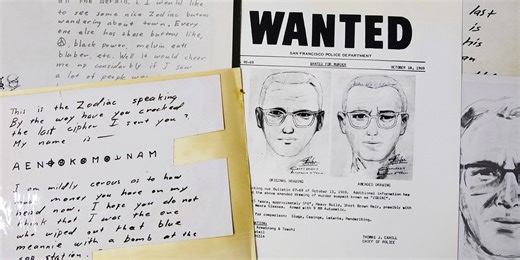 to see some nice Zodiac butons
wandering about town. Every
one else has these buttons like,
black power, melvin eats
bluber, etc. Well it would cheer
me up considerbly if I saw
a lot of people
This is the Zodiac speaking
By the way have you cracked
the last cipher I sent you?
My name is —
AEN⊕⊗K⊗M⊗⅃NAM
I am mildly cerous as to how
much money you have on my
head now. I hope you do not
think that I was the one
who wiped out that blue
meannie with a bomb at the
cop station.
WANTED
SAN FRANCISCO POLICE DEPARTMENT
WANTED FOR MURDER
OCTOBER 18, 1969
ORIGINAL DRAWING
AMENDED DRAWING
Bulletin 87-69 of October 13, 1969. Additional information has
the above amended drawing of murder suspect known as "ZODIAC".
Years, Approximately 5'8", Heavy Build, Short Brown Hair, possibly with
Glasses. Armed with 9 MM Automatic.
for comparison: Slugs, Casings, Latents, Handwriting.
Armstrong & Toschi
THOMAS J. CAHILL
CHIEF OF POLICE
last
is
on